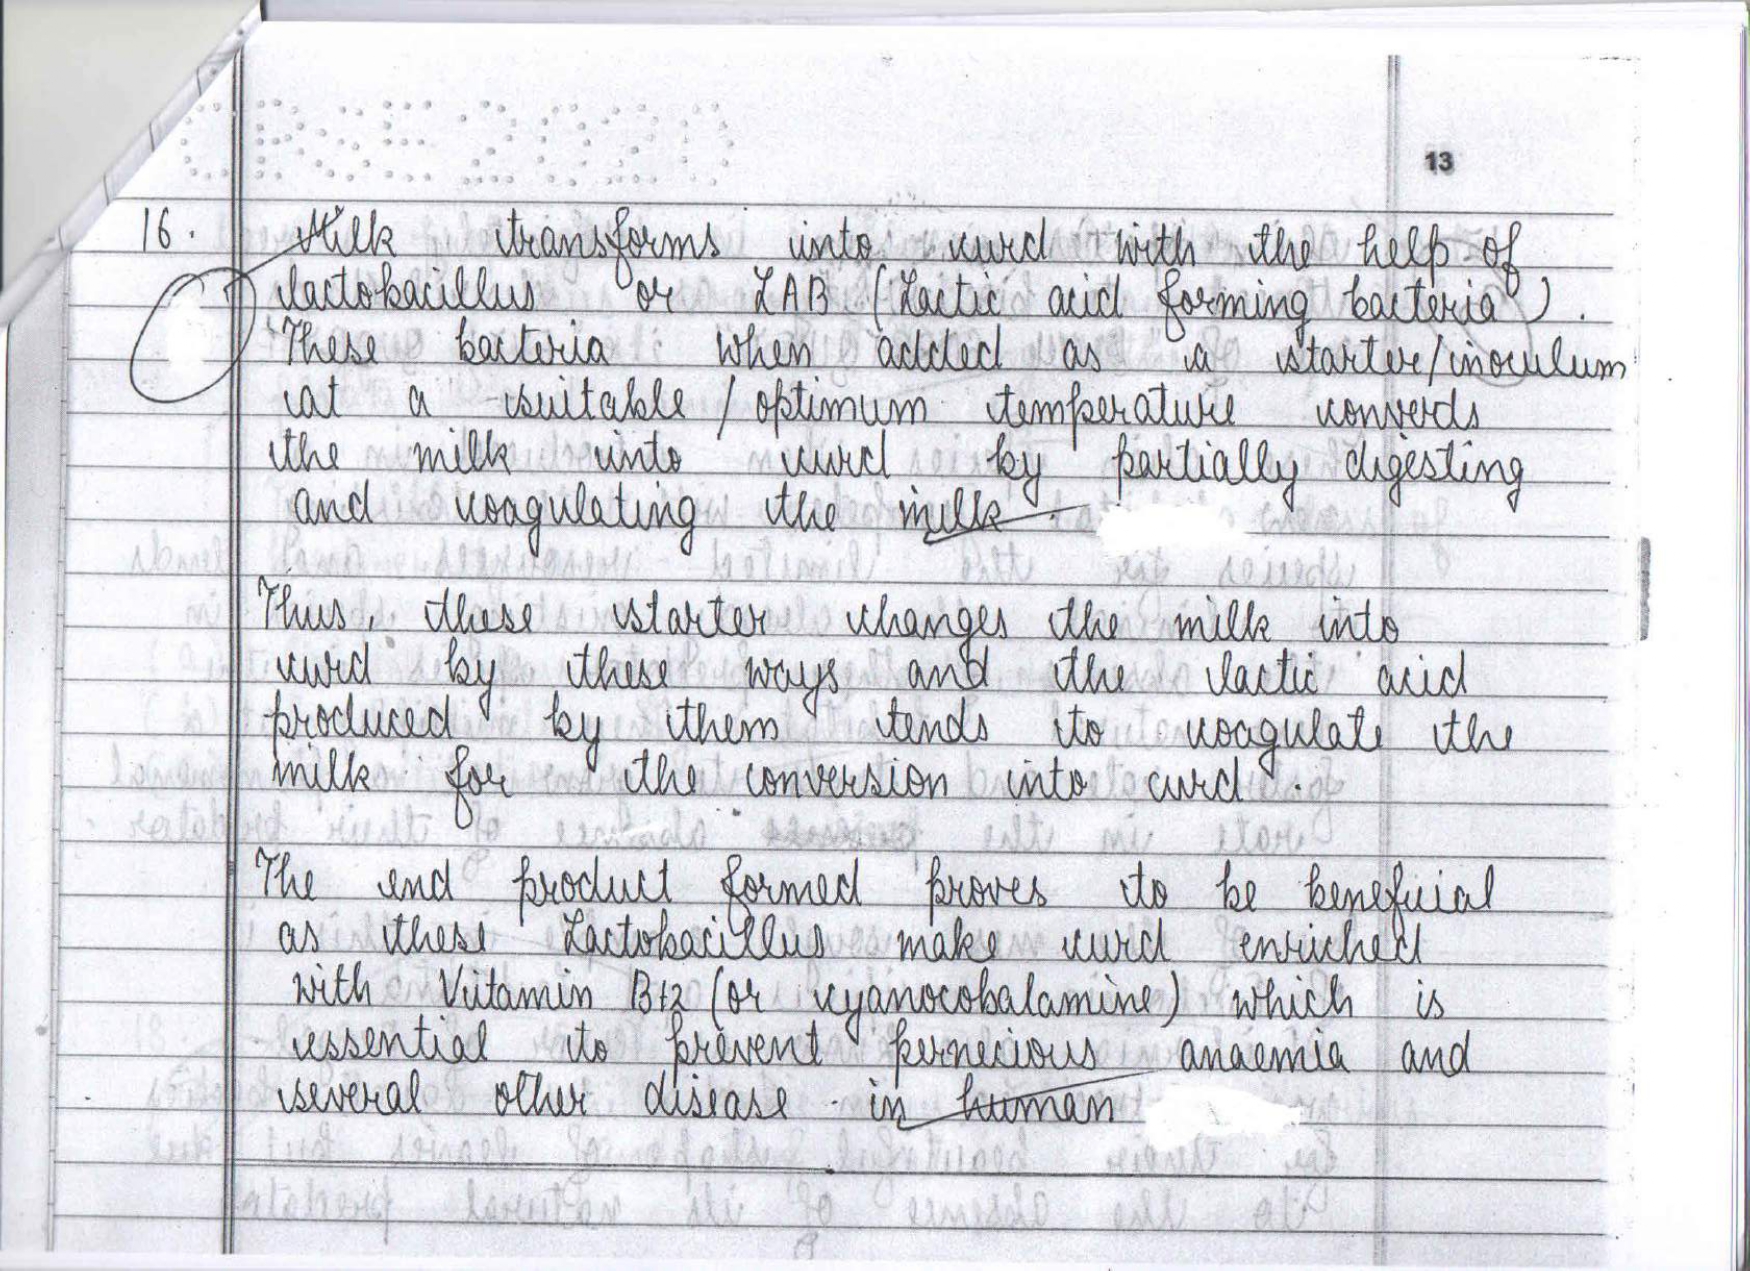 CBSE 2020
13
16. Milk transforms into curd with the help of
lactobacillus or LAB (Lactic acid forming bacteria).
These bacteria when added as a starter/inoculum
at a suitable / optimum temperature converts
the milk into curd by partially digesting
and coagulating the milk.
Thus, these starter changes the milk into
curd by these ways and the lactic acid
produced by them tends to coagulate the
milk for the conversion into curd.
The end product formed proves to be beneficial
as these Lactobacillus make curd enriched
with Vitamin B12 (or cyanocobalamine) which is
essential to prevent pernecious anaemia and
several other disease in human